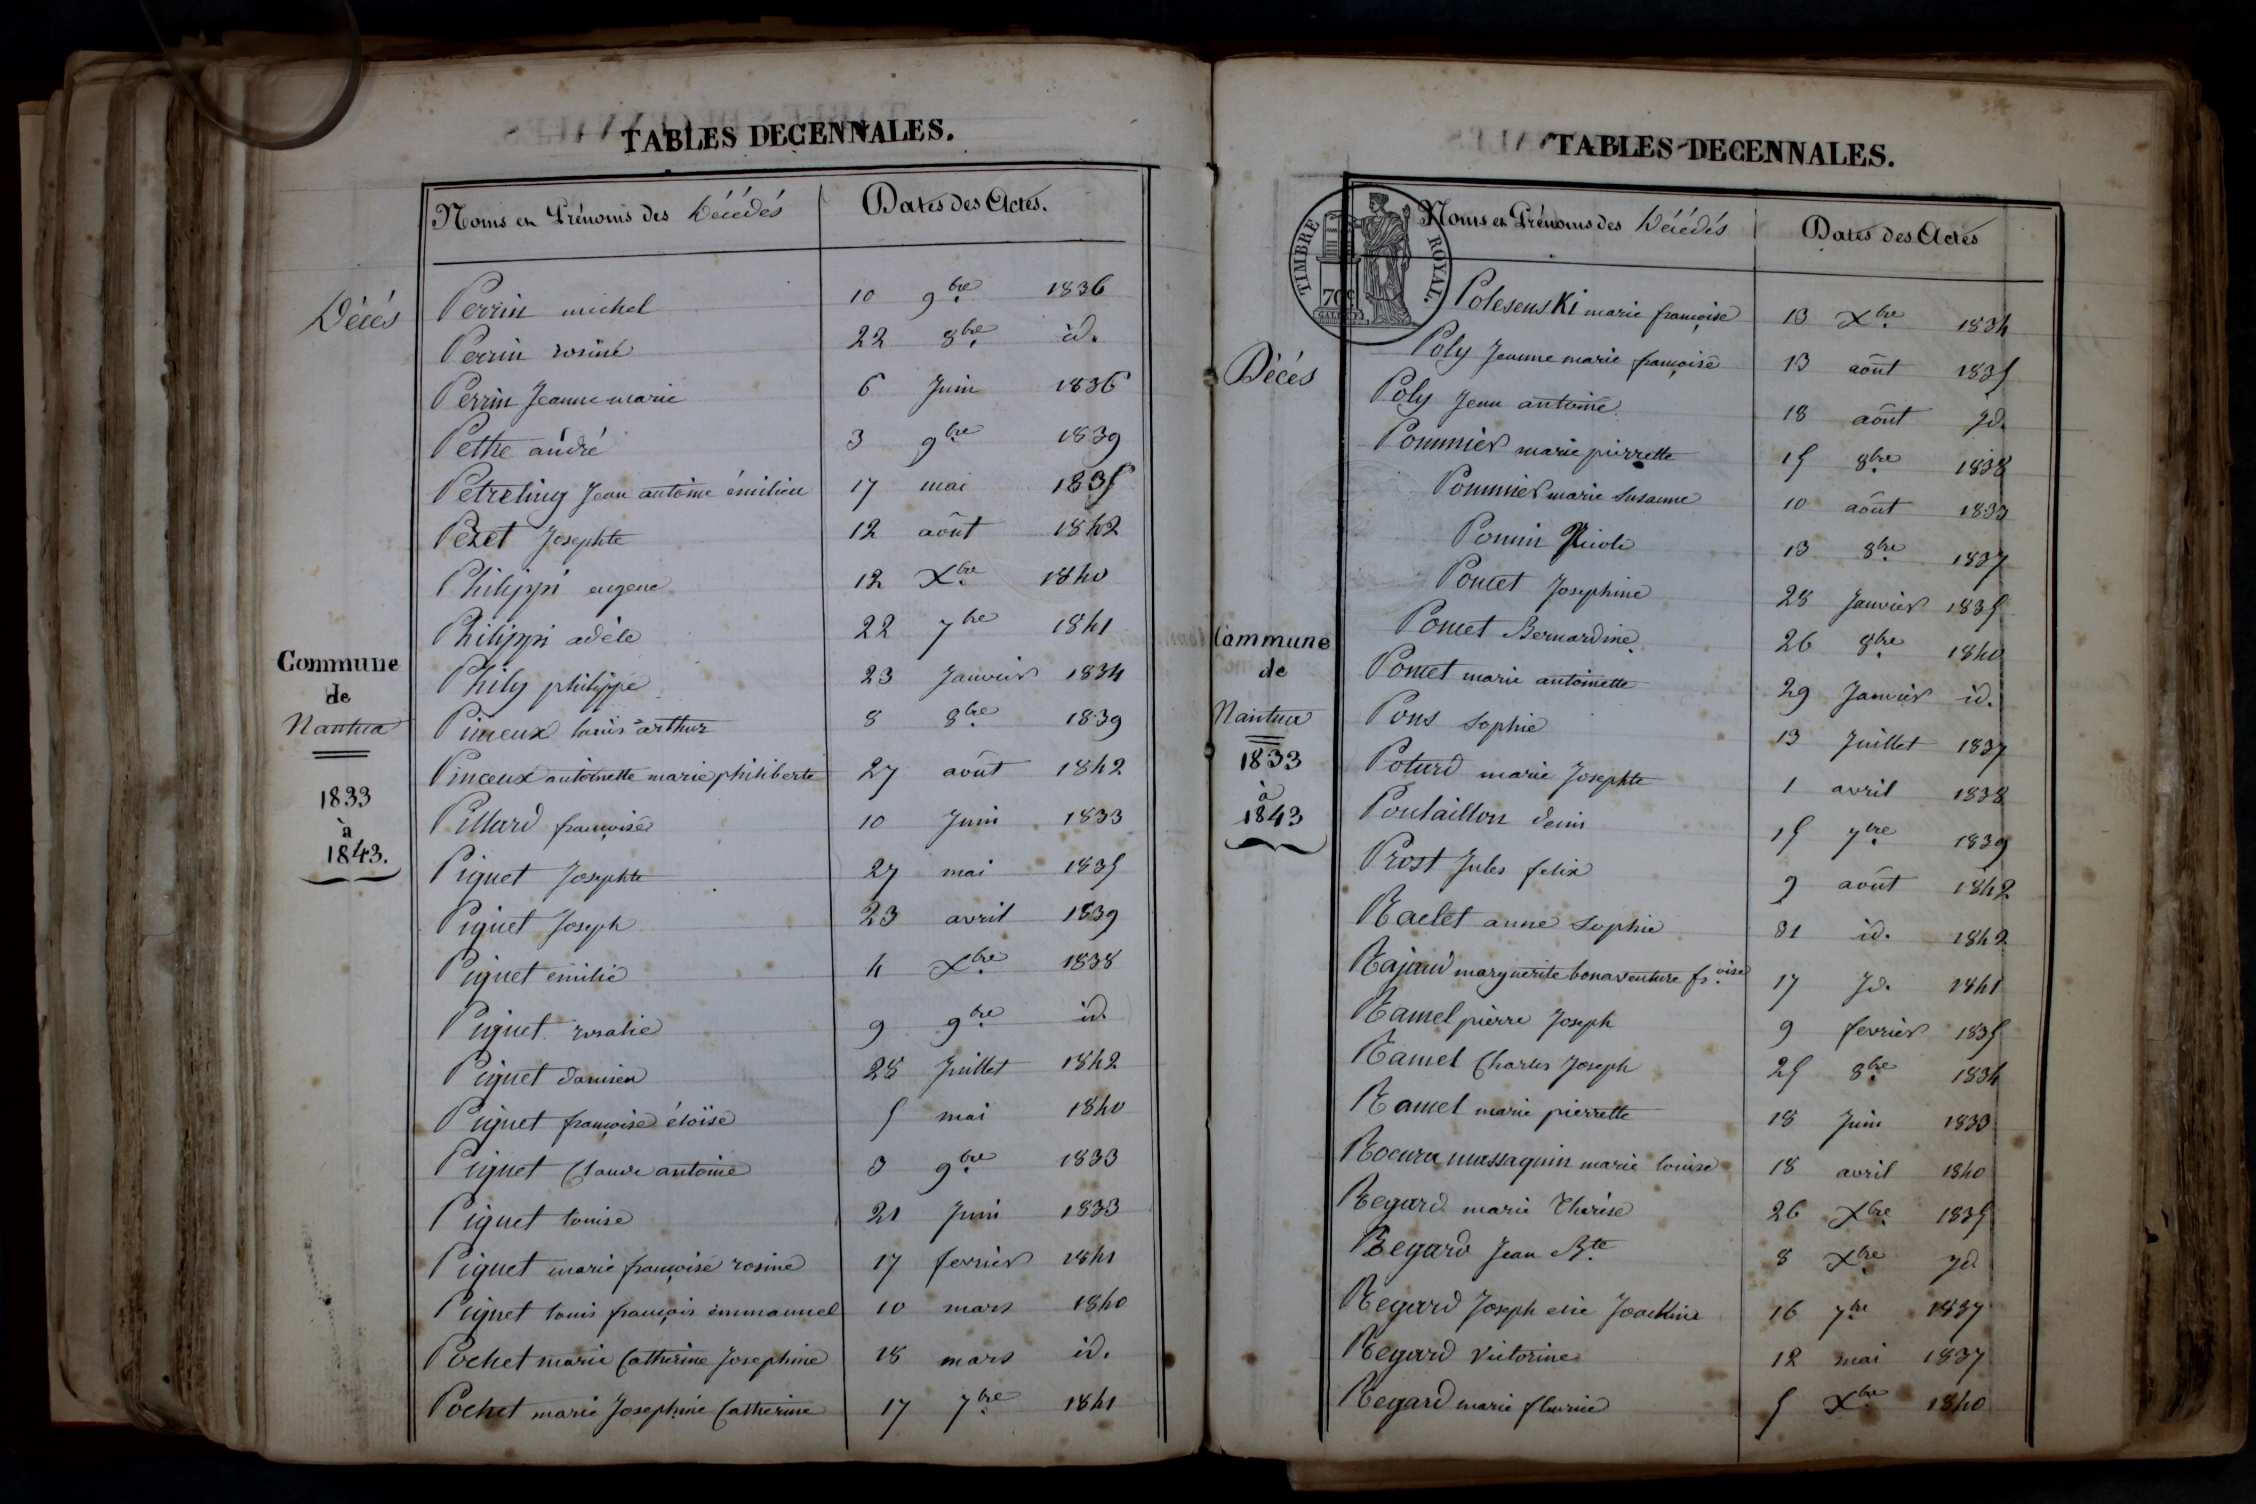 TABLES DECENNALES.
Noms et Prénoms des Décédés Dates des Actes.
Décés
Commune
de
Nantua
1833
à
1843.
Perrin michel 10 9bre 1836
Perrin rosine 22 8bre id.
Perrin Jeanne marie 6 Juin 1836
Pethe andré 3 9bre 1839
Petreling Jean antoine émilien 17 mai 1835
Pezet Josephte 12 août 1842
Philippi eugene 12 Xbre 1840
Philippi adèle 22 7bre 1841
Phily philippe 23 Janvier 1834
Pineux louis arthur 8 8bre 1839
Pinceux antoinette marie philiberte 27 août 1842
Pillard françoise 10 Juin 1833
Piquet Josephte 27 mai 1835
Piquet Joseph 23 avril 1839
Piquet émilie 4 Xbre 1838
Piquet rosalie 9 9bre id.
Piquet damien 28 Juillet 1842
Piquet françoise éloïse 5 mai 1840
Piquet Claude antoine 3 9bre 1833
Piquet louise 21 Juin 1833
Piquet marie françoise rosine 17 fevrier 1841
Piquet louis françois emmanuel 10 mars 1840
Pochet marie Catherine Josephine 18 mars id.
Pochet marie Josephine Catherine 17 7bre 1841
TABLES DECENNALES.
TIMBRE ROYAL.
70c
Noms et Prénoms des Décédés Dates des Actes
Décés
Commune
de
Nantua
1833
à
1843
Polesenski marie françoise 13 Xbre 1834
Poly Jeanne marie françoise 13 août 1835
Poly Jean antoine 18 août Id.
Pommier marie pierrette 15 8bre 1838
Pommier marie susanne 10 août 1833
Pomin Nicole 13 8bre 1837
Poncet Josephine 28 Janvier 1835
Poncet Bernardine 26 8bre 1840
Poncet marie antoinette 29 Janvier id.
Pons sophie 13 Juillet 1837
Poturd marie Josephte 1 avril 1838
Poulaillon denis 15 7bre 1839
Prost Jules felix 9 août 1842
Raclet anne sophie 31 id. 1842
Rajaud marguerite bonaventure fs.oise 17 Id. 1841
Ramel pierre Joseph 9 fevrier 1835
Ramel Charles Joseph 25 8bre 1834
Ramel marie pierrette 18 Juin 1833
marie louise 18 avril 1840
Regard marie Thérèse 26 Xbre 1835
Regard Jean Bte 8 Xbre Id
Regard Joseph elie Joachim 16 7bre 1837
Regard victorine 12 mai 1837
Regard marie fleurie 5 Xbre 1840